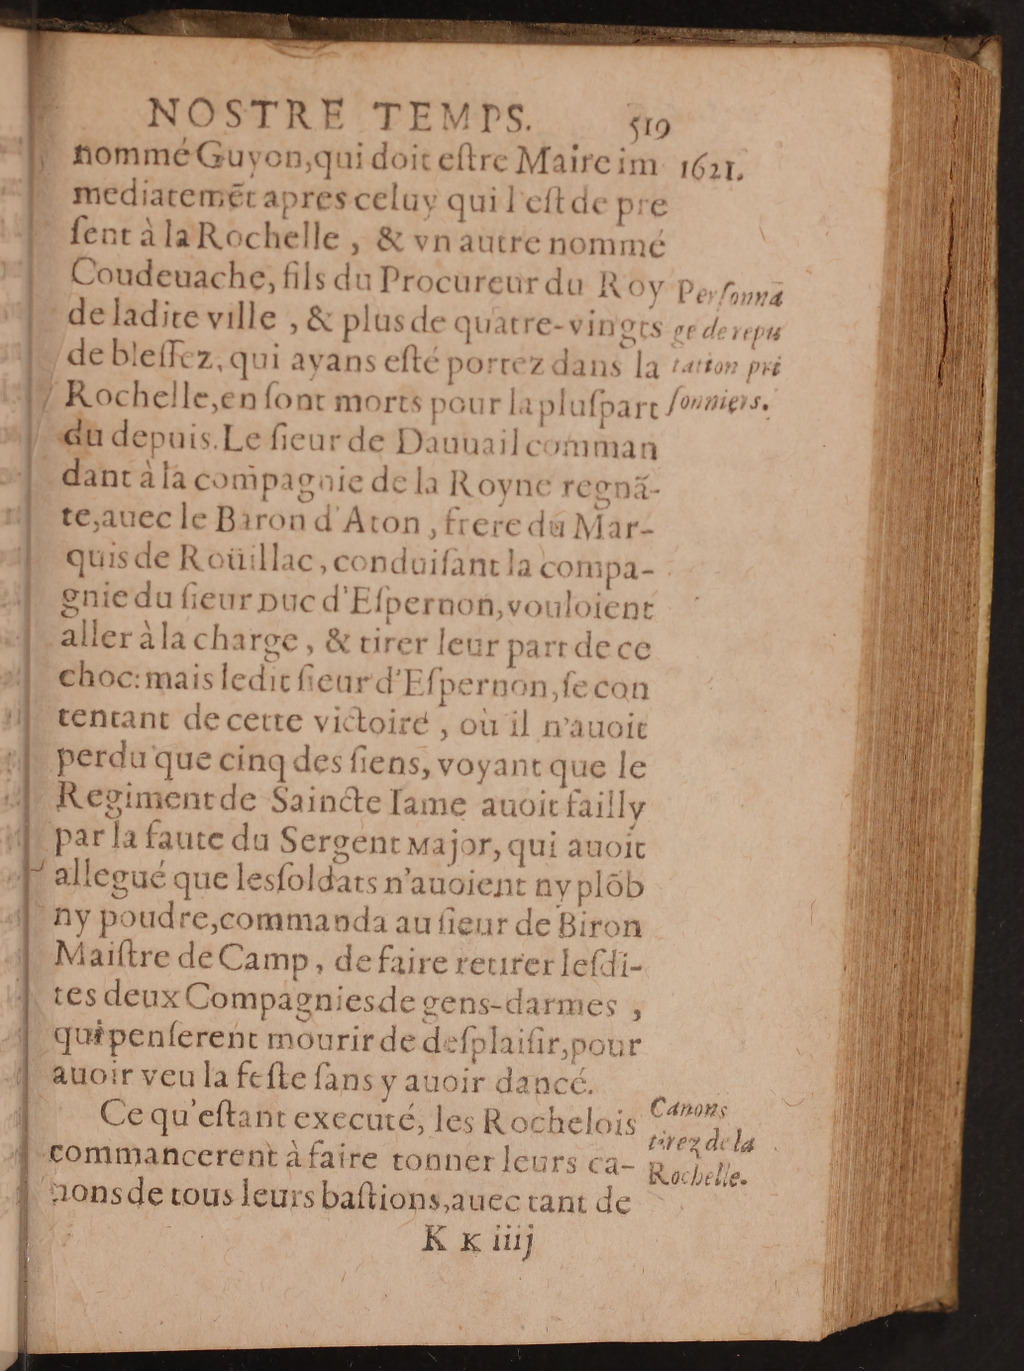 NOSTRE TEMPS. 519
nommé Guyon, qui doit eſtre Maire im 1621.
mediatemēt apres celuy qui l'eſt de pre
ſent à la Rochelle, & vn autre nommé
Coudeuache, fils du Procureur du Roy
de ladite ville, & plus de quatre-vingts
de bleſſez, qui ayans eſté portez dans la
Rochelle, en ſont morts pour la pluſpart
Perſonna
ge de repu
tation pri
ſonniers.
du depuis. Le ſieur de Dauuail comman
dant à la compagnie de la Royne regnā-
te, auec le Baron d'Aton, frere du Mar-
quis de Roüillac, conduiſant la compa-
gnie du ſieur Duc d'Eſpernon, vouloient
aller à la charge, & tirer leur part de ce
choc: mais ledit ſieur d'Eſpernon, ſe con
tentant de cette victoire, où il n'auoit
perdu que cinq des ſiens, voyant que le
Regiment de Saincte Iame auoit failly
par la faute du Sergent Major, qui auoit
allegué que les ſoldats n'auoient ny plōb
ny poudre, commanda au ſieur de Biron
Maiſtre de Camp, de faire retirer leſdi-
tes deux Compagnies de gens-darmes,
qui penſerent mourir de deſplaiſir, pour
auoir veu la feſte ſans y auoir dancé.
Ce qu'eſtant executé, les Rochelois
commancerent à faire tonner leurs ca-
nons de tous leurs baſtions, auec tant de
Canons
tirez de la
Rochelle.
K K iiij